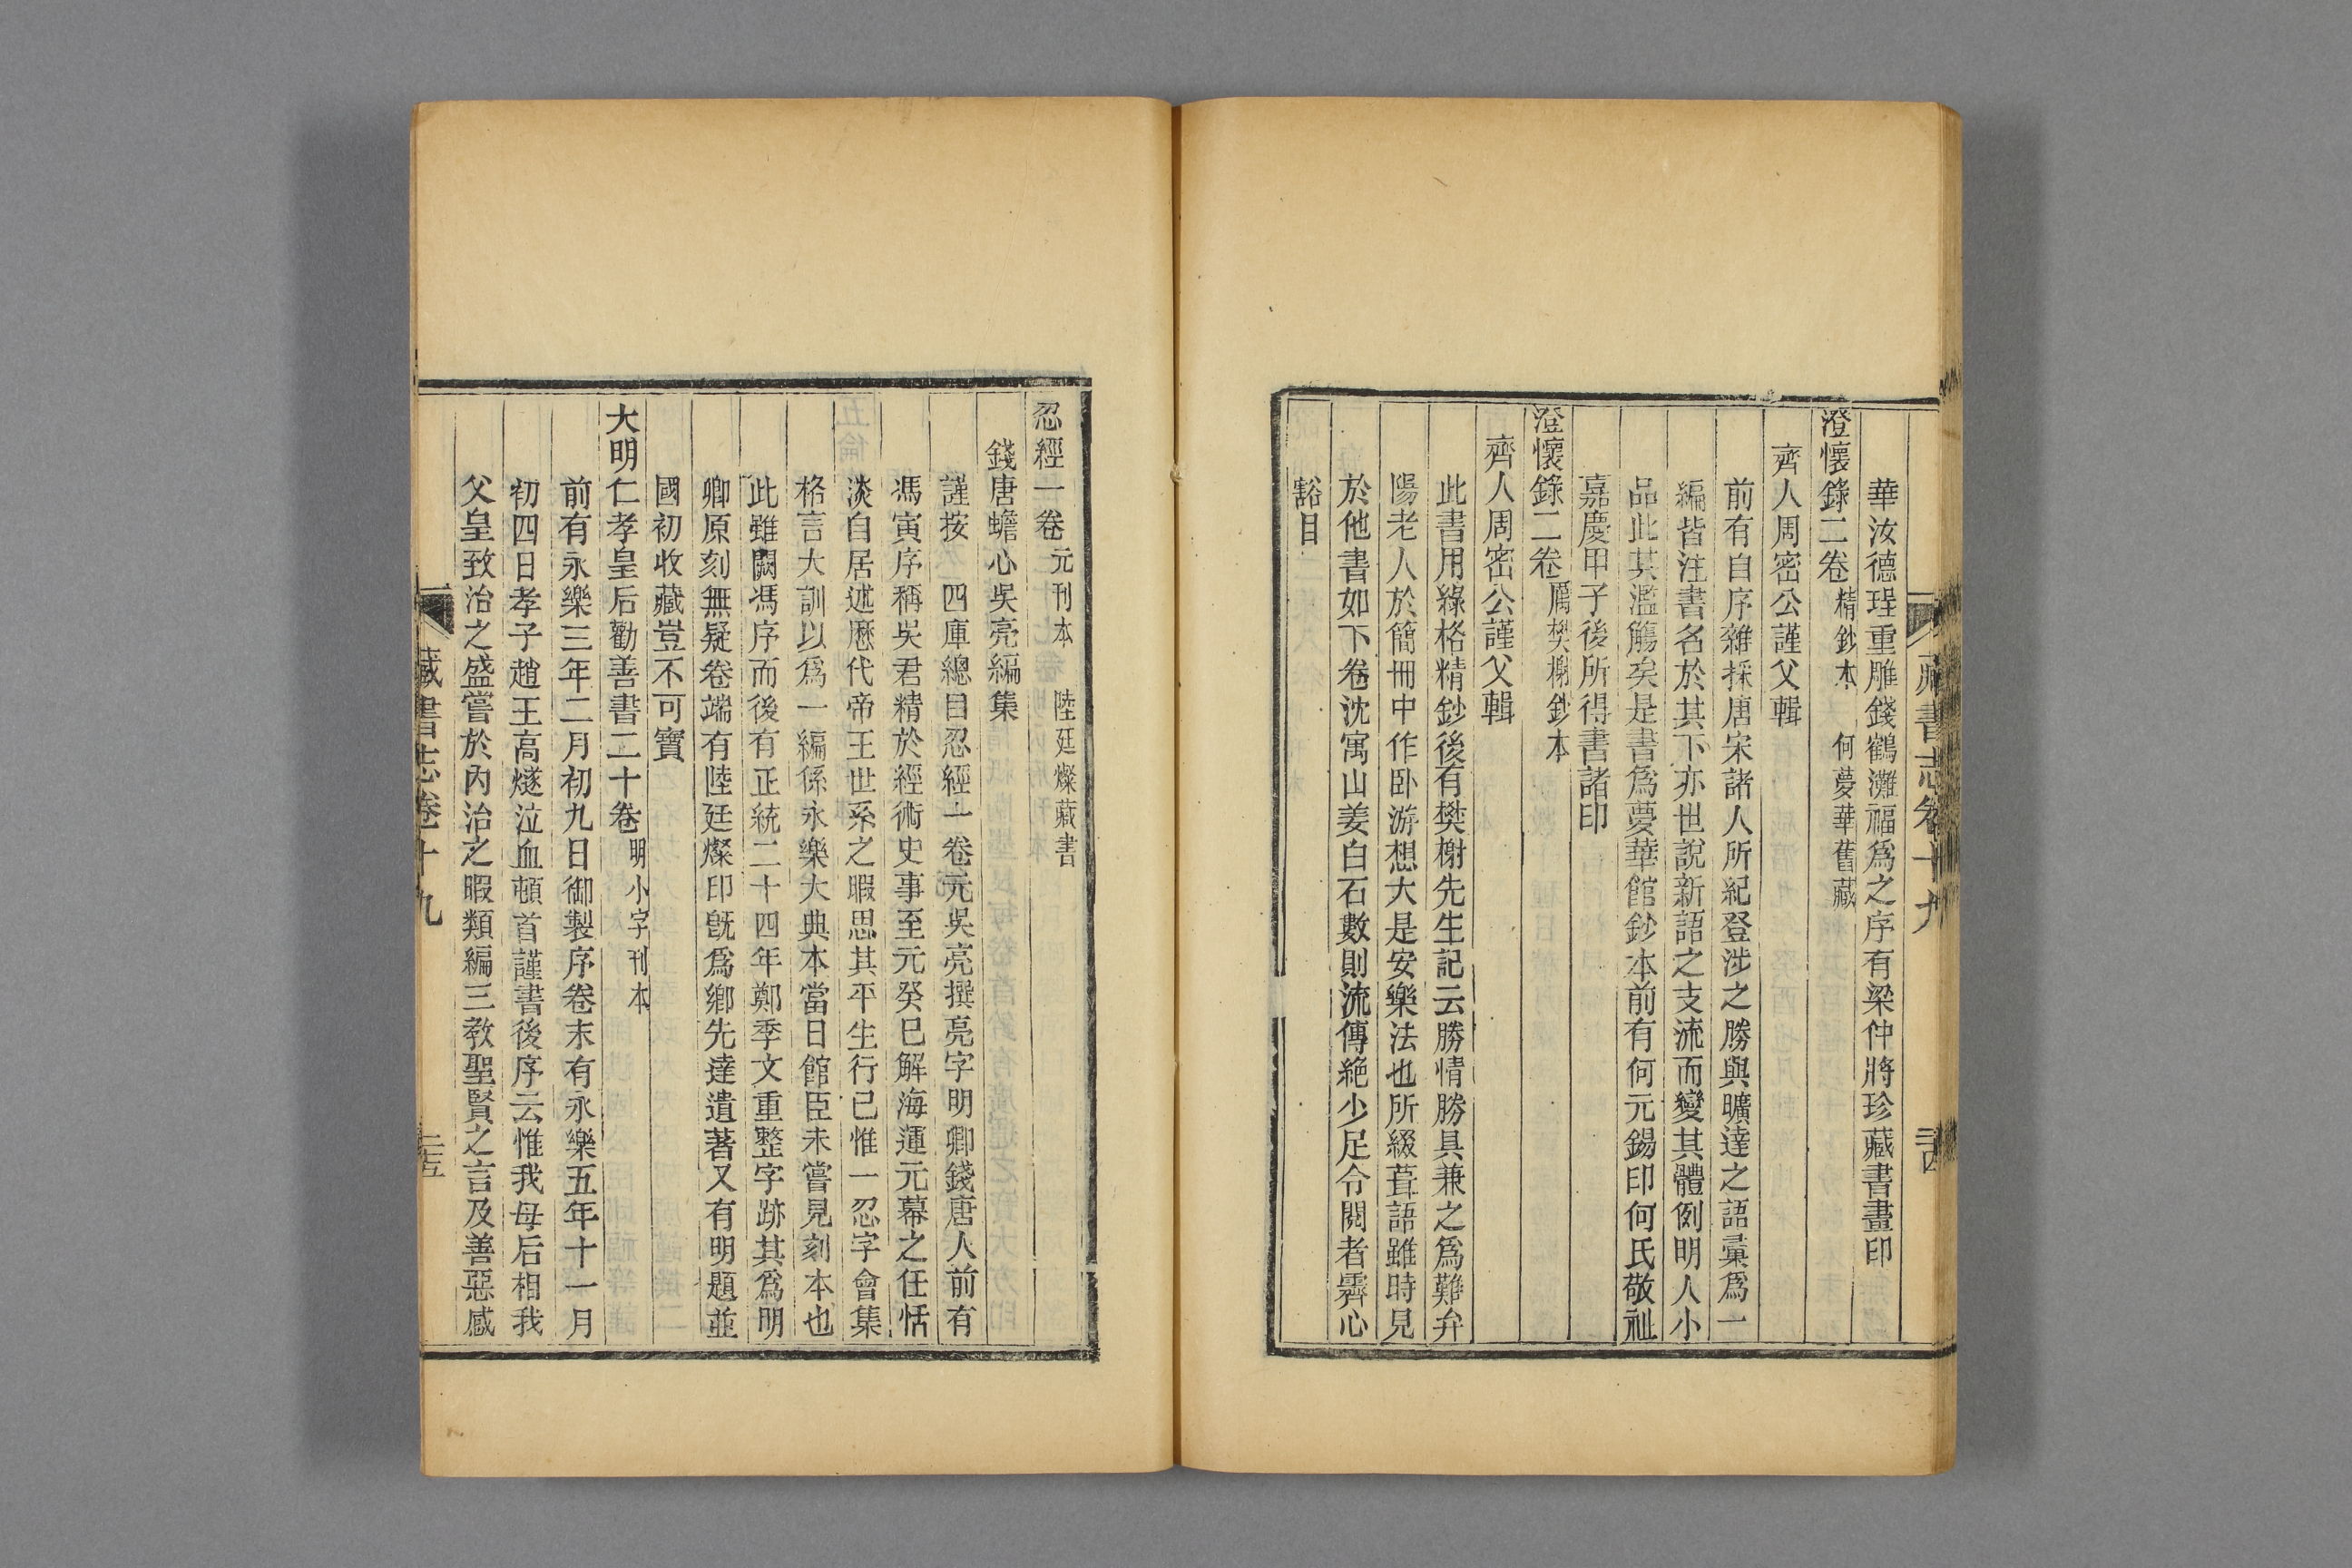 華汝德珵重雕錢鶴灘福爲之序有梁仲將珍藏書畫印
澄懷錄二卷 精鈔本 何夢華舊藏
齊人周密公謹父輯
前有自序雜採唐宋諸人所紀登涉之勝與曠達之語彚爲一
編皆注書名於其下亦世說新語之支流而變其體例明人小
品此其濫觴矣是書爲夢華館鈔本前有何元錫印何氏敬祉
嘉慶甲子後所得書諸印
澄懷錄二卷 厲樊榭鈔本
齊人周密公謹父輯
此書用綠格精鈔後有樊榭先生記云勝情勝具兼之爲難弁
陽老人於簡冊中作卧游想大是安樂法也所綴葺語雖時見
於他書如下卷沈寓山姜白石數則流傳絕少足令閱者霽心
豁目
藏書志卷十九 二十四
忍經一卷 元刊本 陸廷燦藏書
錢唐蟾心吳亮編集
謹按 四庫總目忍經一卷元吳亮撰亮字明卿錢唐人前有
馮寅序稱吳君精於經術史事至元癸巳解海運元幕之任恬
淡自居述厯代帝王世系之暇思其平生行已惟一忍字會集
格言大訓以爲一編係永樂大典本當日館臣未嘗見刻本也
此雖闕馮序而後有正統二十四年鄭季文重整字跡其爲明
卿原刻無疑卷端有陸廷燦印旣爲鄉先達遺著又有明題並
國初收藏豈不可寶
大明仁孝皇后勸善書二十卷 明小字刊本
前有永樂三年二月初九日御製序卷末有永樂五年十一月
初四日孝子趙王高燧泣血頓首謹書後序云惟我母后相我
父皇致治之盛嘗於內治之暇類編三教聖賢之言及善惡感
藏書志卷十九 二十五